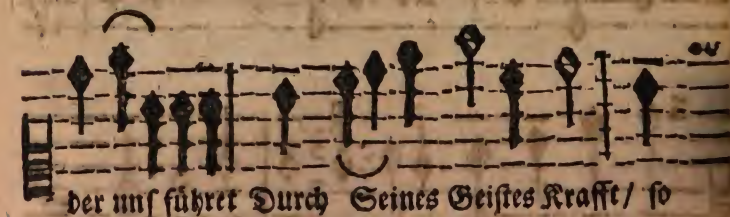 der unſ führet Durch Seines Geiſtes Krafft/ ſo